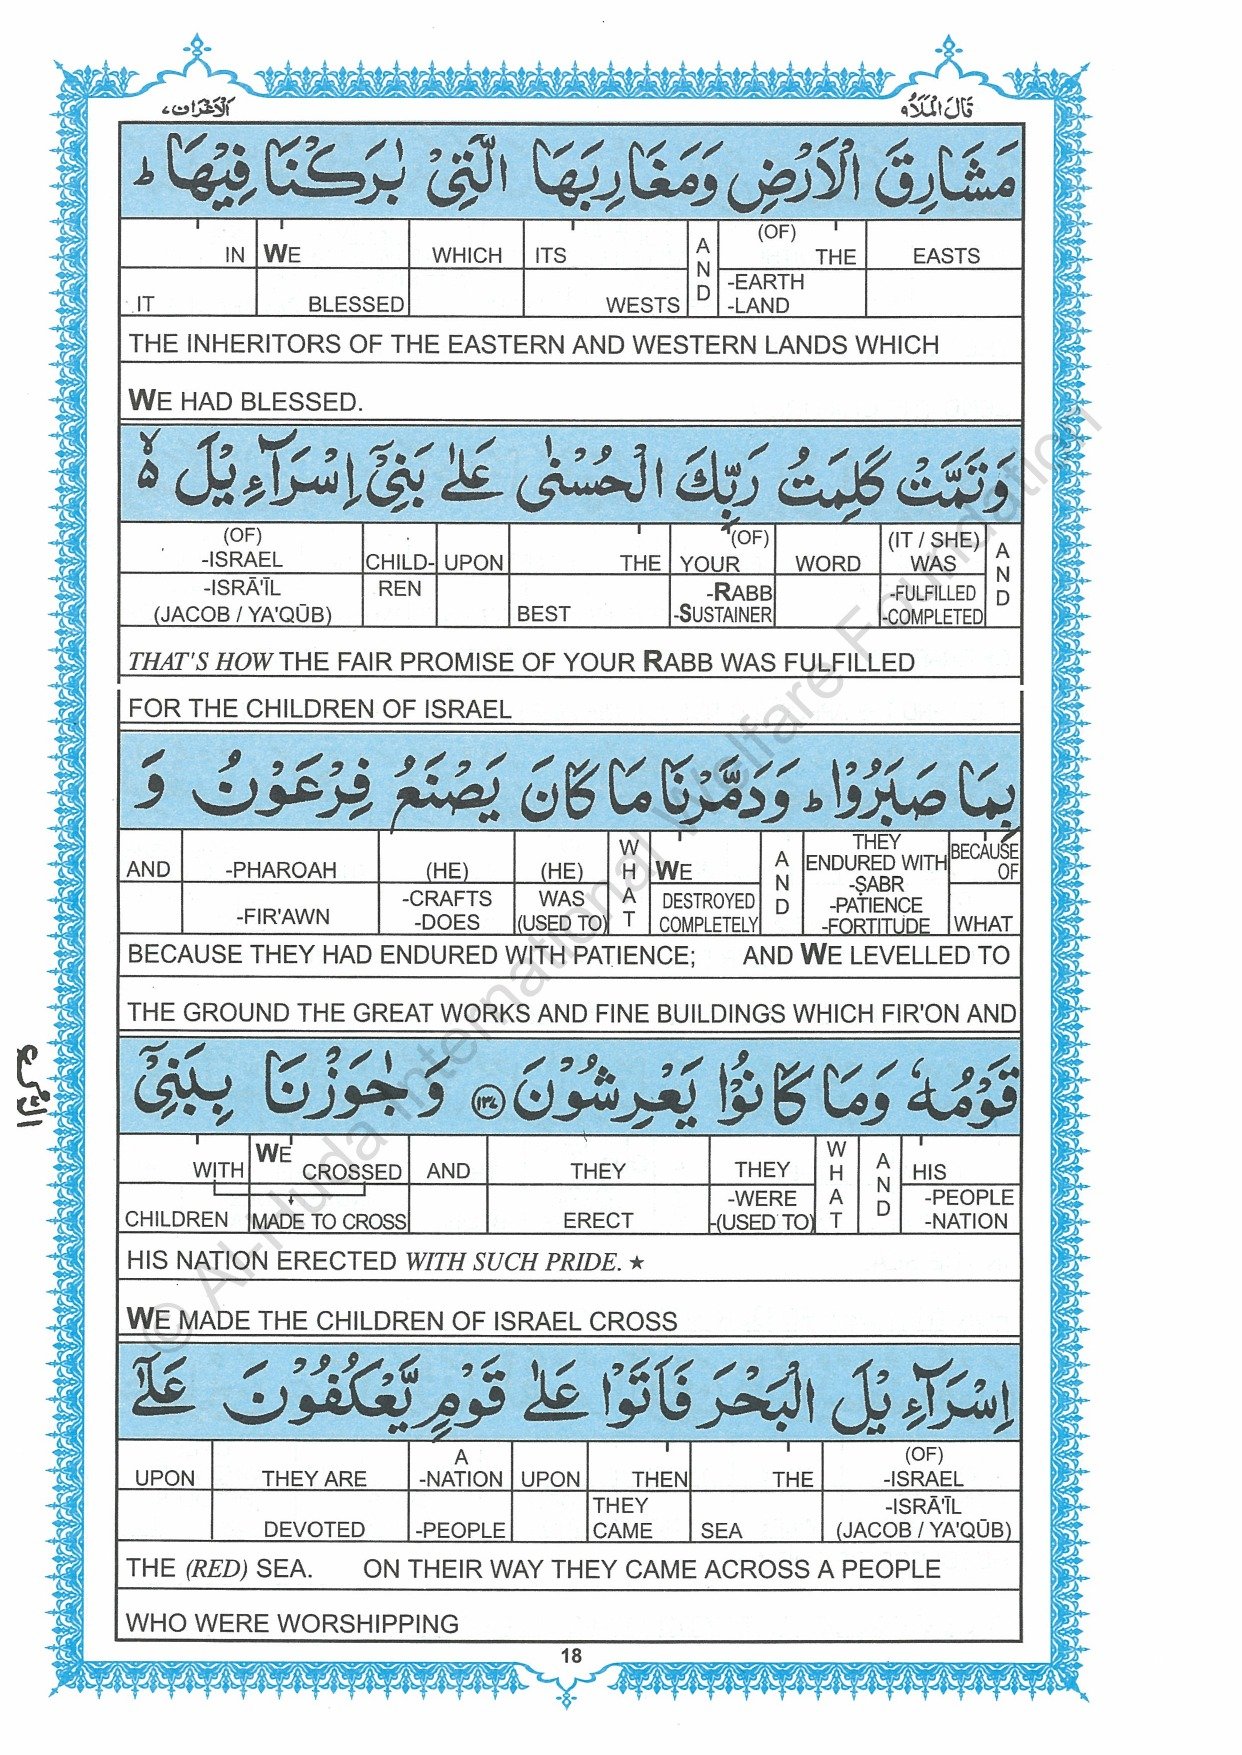 الاعراف ٧
قال الملأ ٩
مَشَارِقَ الْاَرْضِ وَمَغَارِبَهَا الَّتِيْ بٰرَكْنَا فِيْهَا ؕ
IN WE WHICH ITS AND (OF) THE EASTS
IT BLESSED WESTS -EARTH -LAND
THE INHERITORS OF THE EASTERN AND WESTERN LANDS WHICH
WE HAD BLESSED.
وَتَمَّتْ كَلِمَتُ رَبِّكَ الْحُسْنٰى عَلٰى بَنِيْٓ اِسْرَآءِيْلَ ۙ۵
(OF) -ISRAEL CHILD- UPON THE (OF) YOUR WORD (IT / SHE) WAS AND
-ISRĀ'ĪL (JACOB / YA'QŪB) REN BEST -RABB -SUSTAINER -FULFILLED -COMPLETED
THAT'S HOW THE FAIR PROMISE OF YOUR RABB WAS FULFILLED
FOR THE CHILDREN OF ISRAEL
بِمَا صَبَرُوْا ؕ وَدَمَّرْنَا مَا كَانَ يَصْنَعُ فِرْعَوْنُ وَ
AND -PHAROAH (HE) (HE) WHAT WE AND THEY ENDURED WITH BECAUSE OF
-FIR'AWN -CRAFTS -DOES WAS (USED TO) DESTROYED COMPLETELY -ṢABR -PATIENCE -FORTITUDE WHAT
BECAUSE THEY HAD ENDURED WITH PATIENCE; AND WE LEVELLED TO
THE GROUND THE GREAT WORKS AND FINE BUILDINGS WHICH FIR'ON AND
قَوْمُهٗ وَمَا كَانُوْا يَعْرِشُوْنَ ۝١٣٧ وَجٰوَزْنَا بِبَنِيْٓ
WITH WE CROSSED AND THEY THEY WHAT AND HIS
CHILDREN MADE TO CROSS ERECT -WERE -(USED TO) -PEOPLE -NATION
HIS NATION ERECTED WITH SUCH PRIDE. ★
WE MADE THE CHILDREN OF ISRAEL CROSS
اِسْرَآءِيْلَ الْبَحْرَ فَاَتَوْا عَلٰى قَوْمٍ يَّعْكُفُوْنَ عَلٰٓى
UPON THEY ARE A -NATION UPON THEN THE (OF) -ISRAEL
DEVOTED -PEOPLE THEY CAME SEA -ISRĀ'ĪL (JACOB / YA'QŪB)
THE (RED) SEA. ON THEIR WAY THEY CAME ACROSS A PEOPLE
WHO WERE WORSHIPPING
18
© Al-Huda International Welfare Foundation